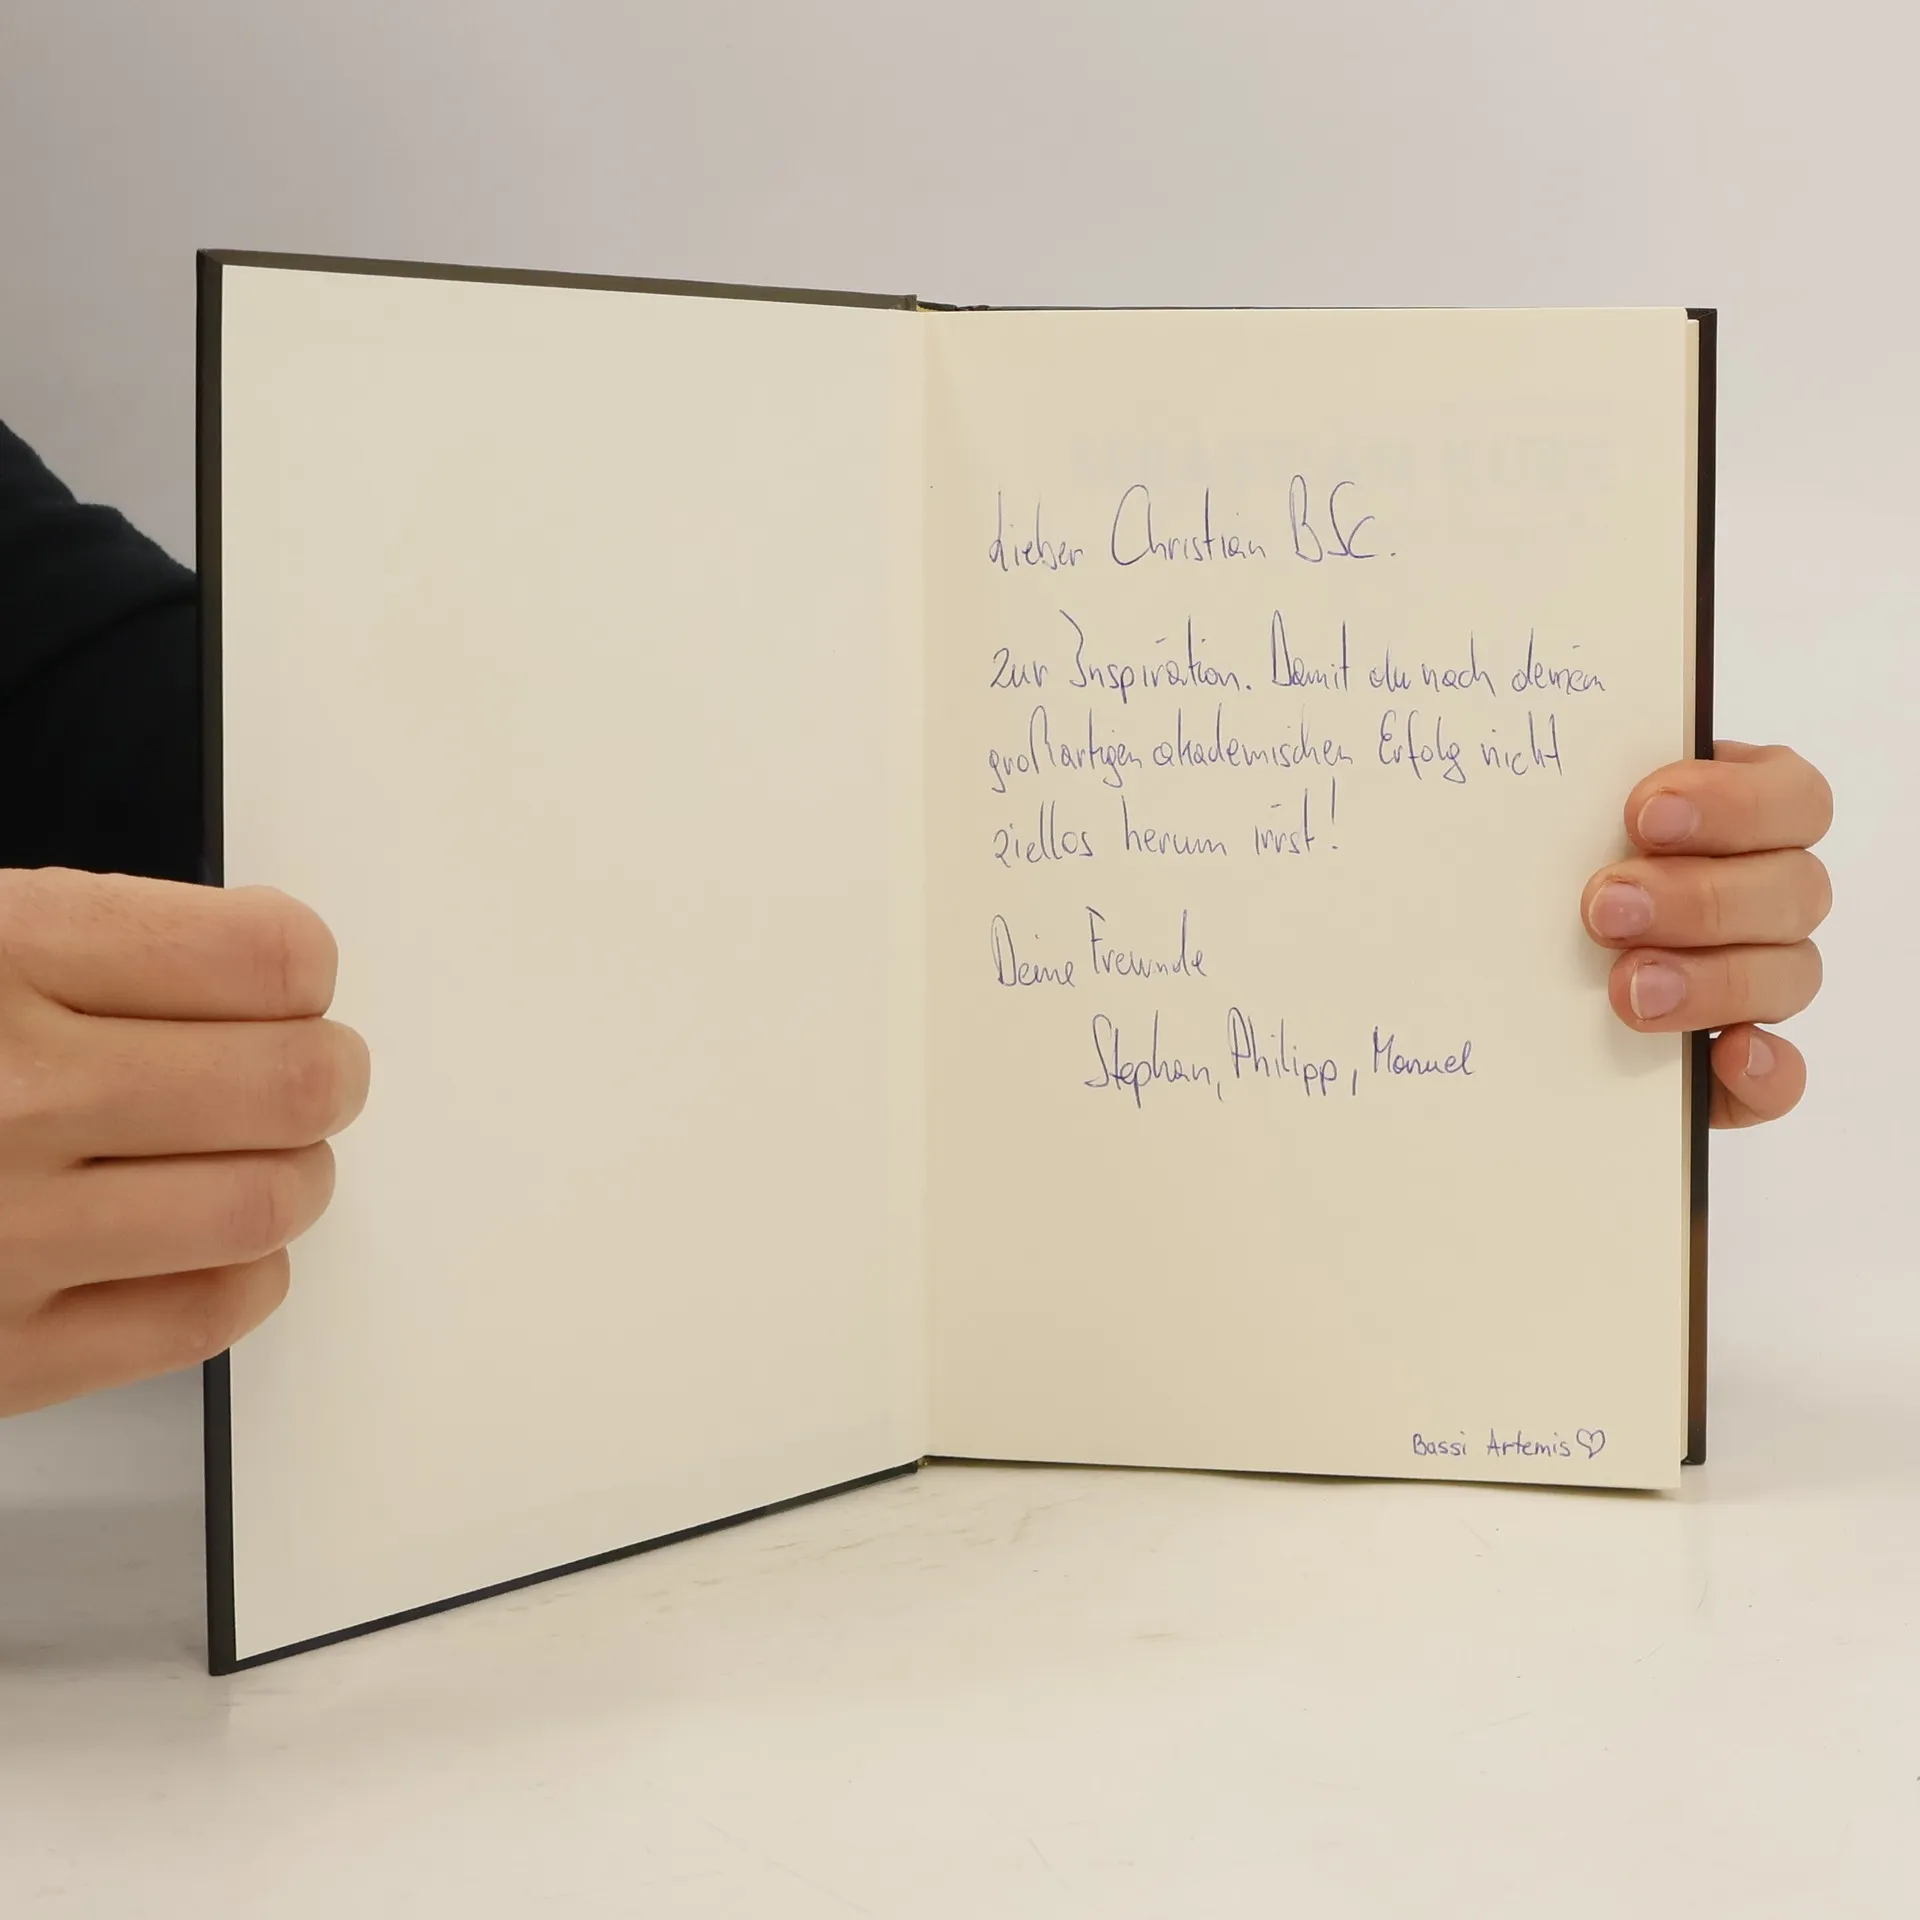 Lieber Christian BSc.
zur Inspiration. Damit du nach deinem
großartigen akademischen Erfolg nicht
ziellos herum irrst!
Deine Freunde
Stephan, Philipp, Manuel
Bassi Artemis♡